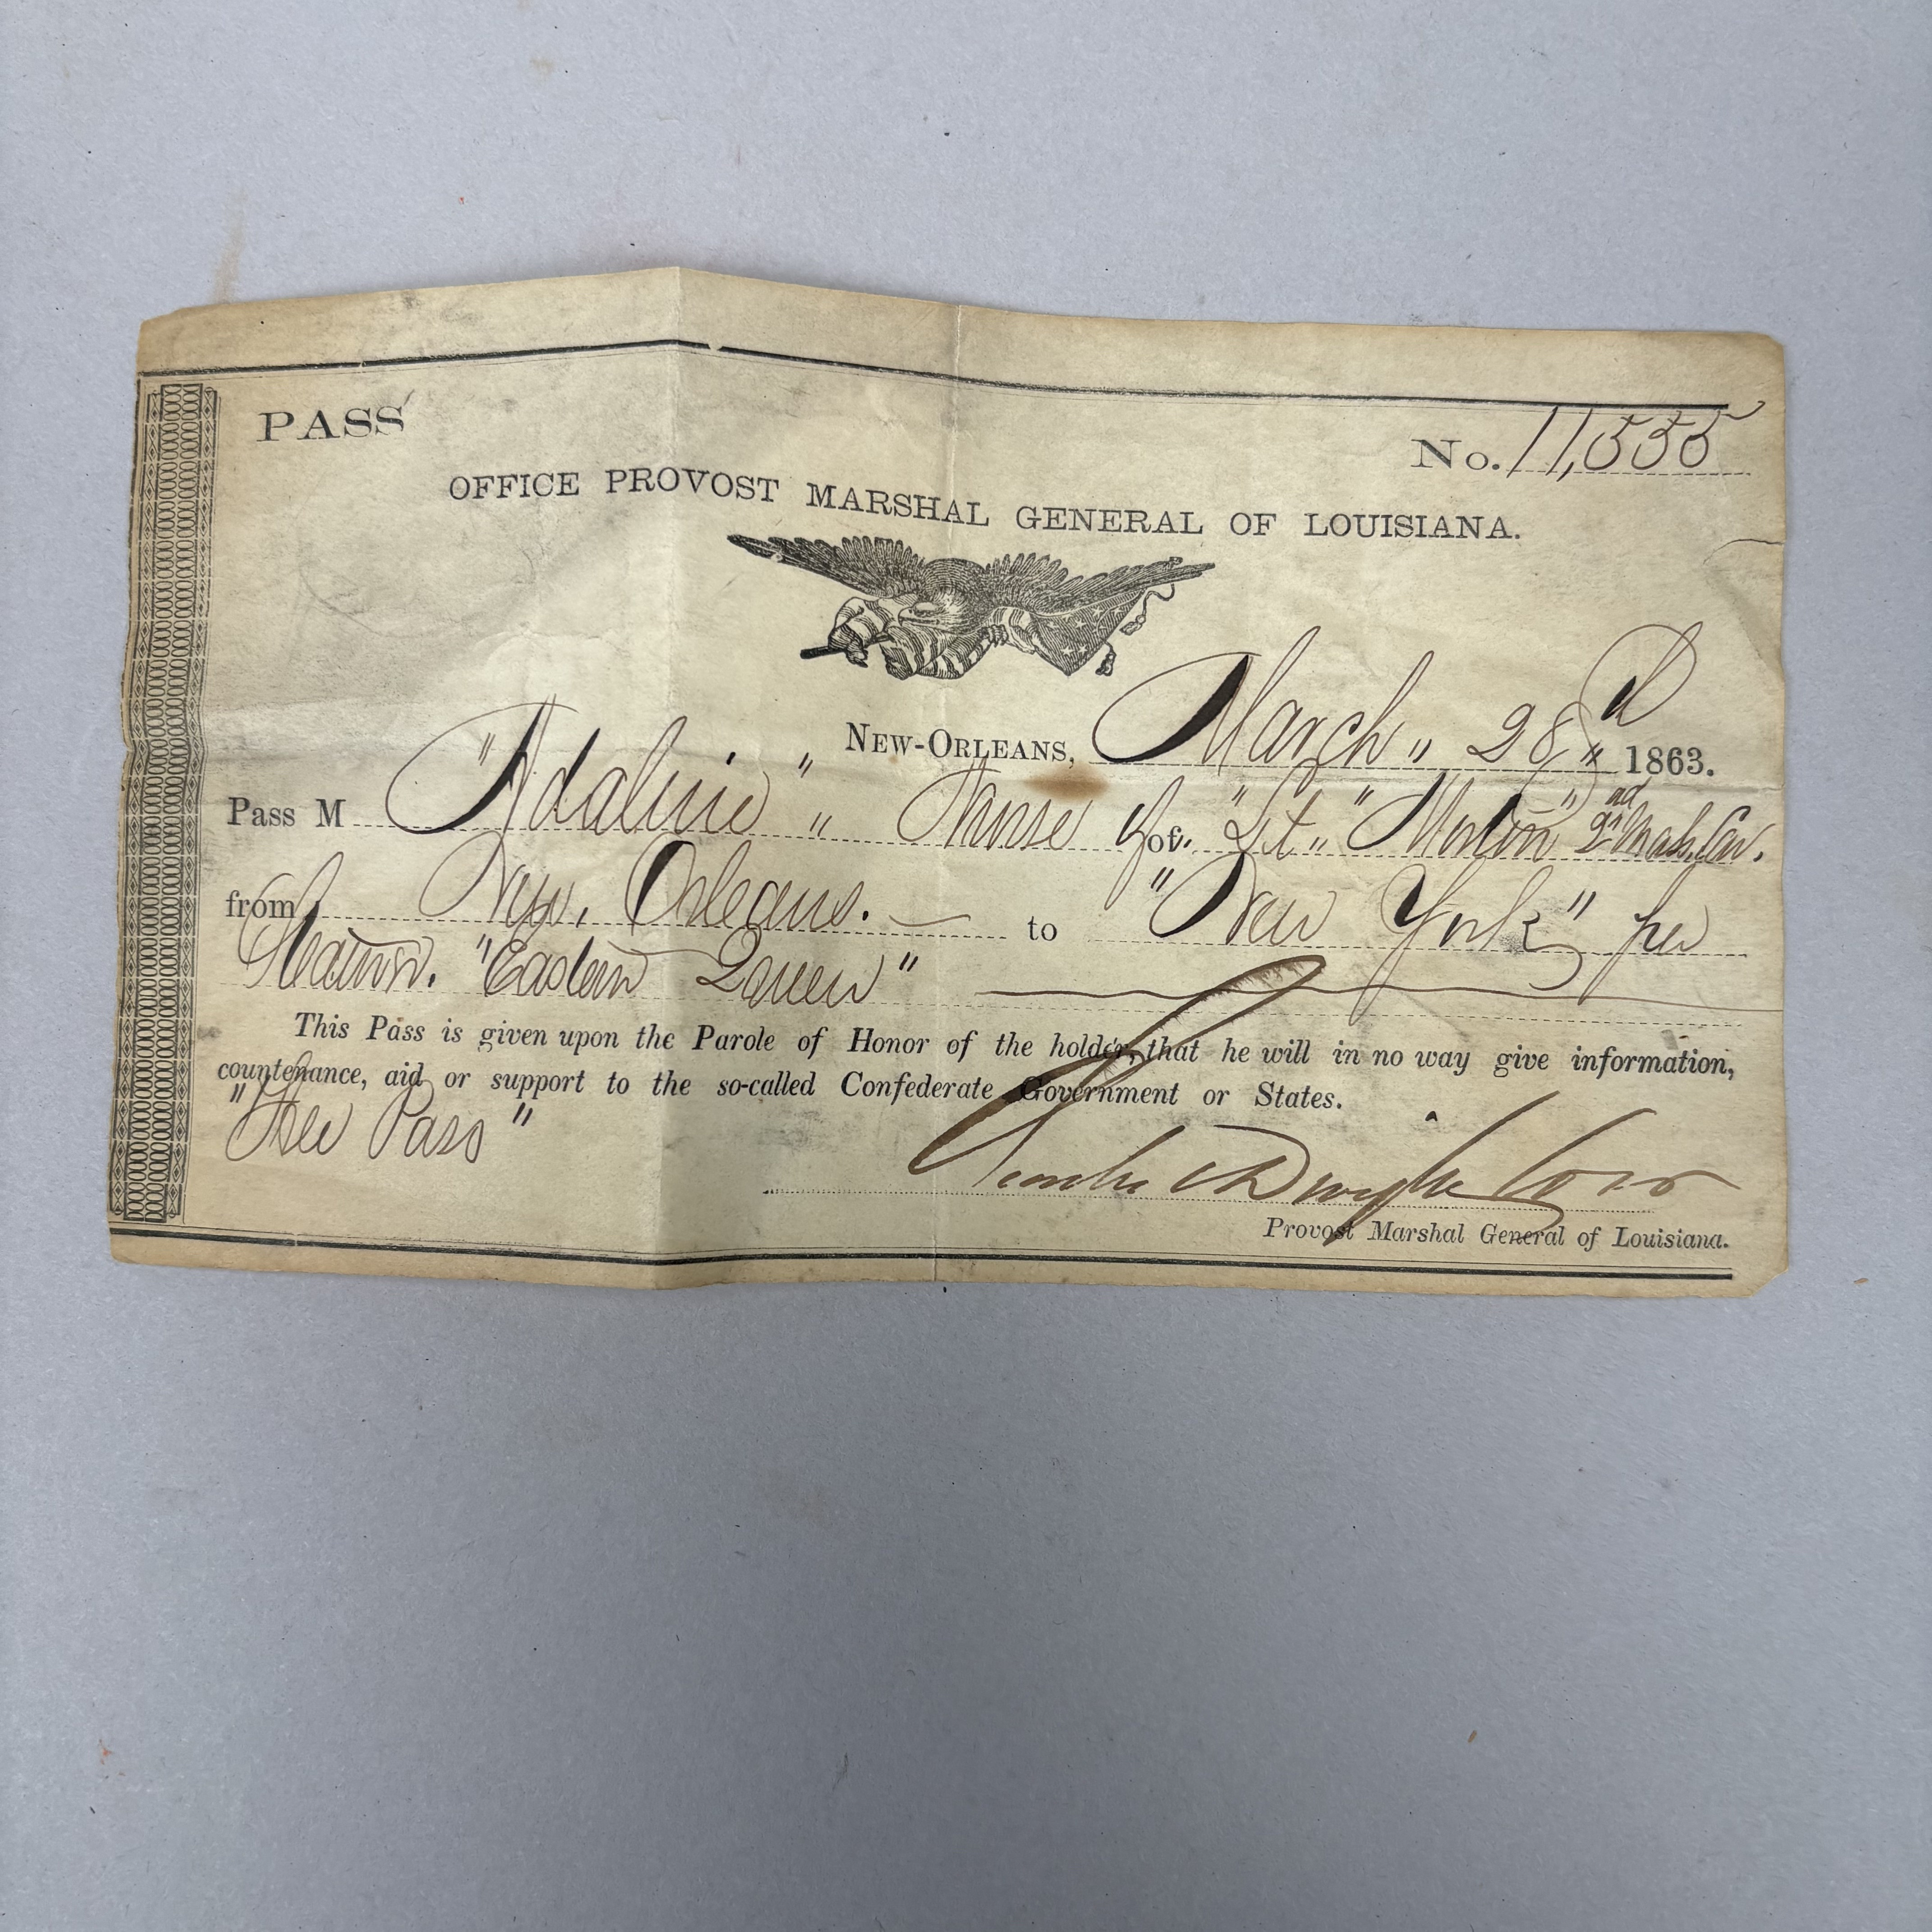 PASS
No. 11,535
OFFICE PROVOST MARSHAL GENERAL OF LOUISIANA.
NEW-ORLEANS, March „ 28 „ d 1863.
Pass M "Adaline" „ Nurse of of. "Lt" „ "Morton" 2nd Mass. Cav.
from New. Orleans. to "New York" per
Steamer. "Eastern Queen"
This Pass is given upon the Parole of Honor of the holder, that he will in no way give information,
countenance, aid or support to the so-called Confederate Government or States.
"Free Pass"
Dwight
Provost Marshal General of Louisiana.